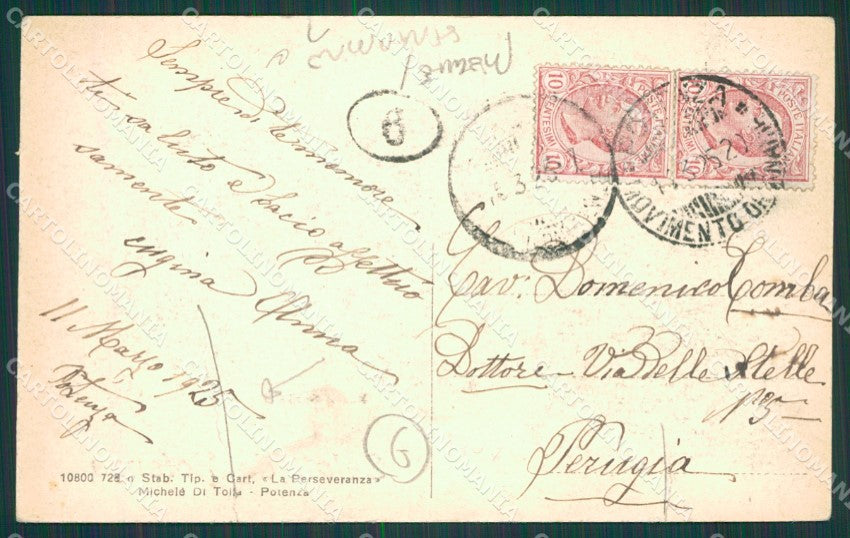 Sempre di te memore
ti saluto e bacio affettuo
samente
cugina Anna
11 Marzo 1925
Potenza
10800 728 Stab. Tip. e Cart. «La Perseveranza»
Michele Di Tolla - Potenza
8
G
Cav: Domenico Tomba
Dottore - Via delle Stelle
N° 5
Perugia
10
10
POSTE ITALIANE
MOVIMENTO
CARTOLINOMANIA